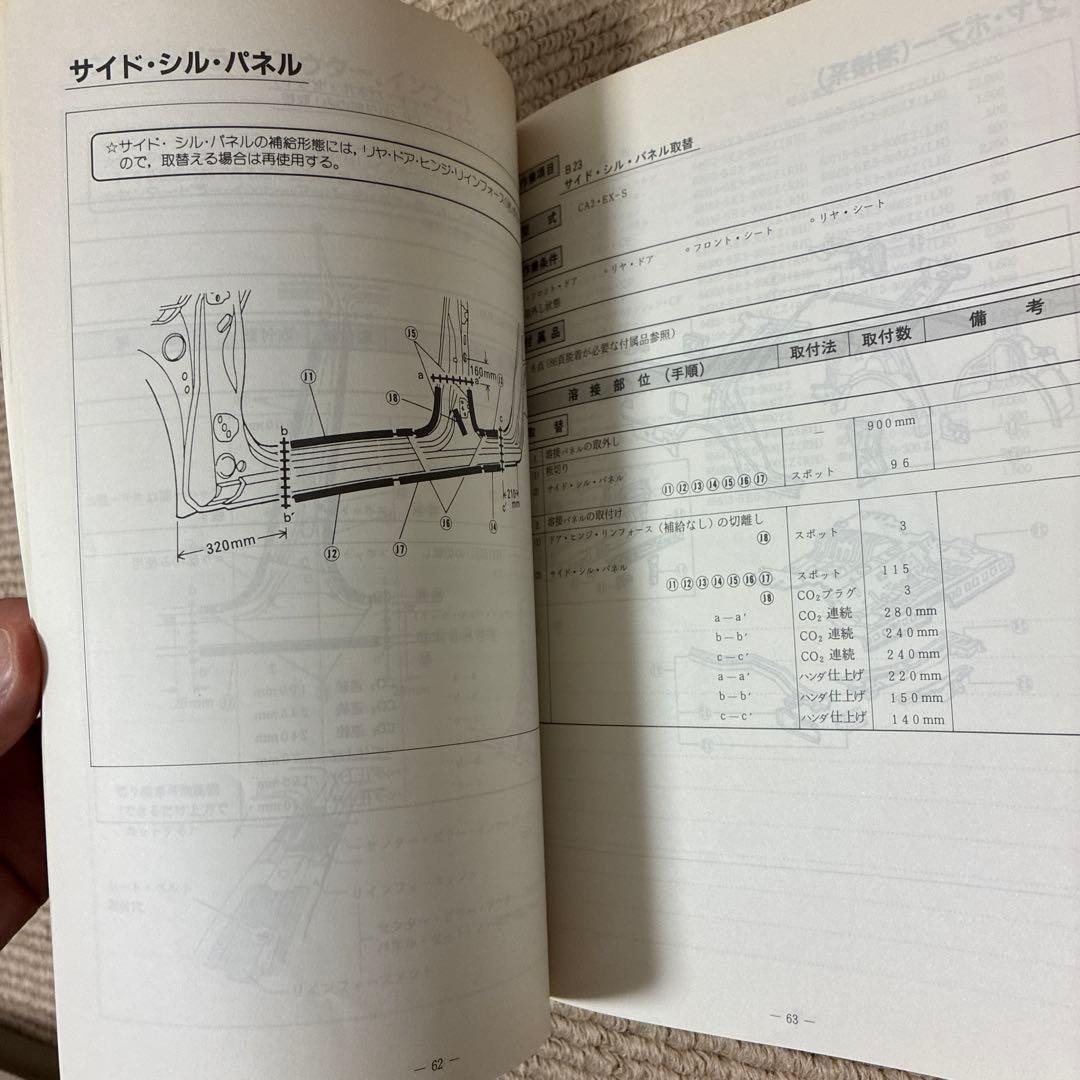 サイド・シル・パネル
☆サイド・シル・パネルの補給形態には，リヤ・ドア・ヒンジ・リインフォース
ので，取替える場合は再使用する。
J5
a
a'
160mm
J8
J1
b
b'
c
c'
210
mm
320mm
J2
J7
J6
J4
― 62 ―
作業項目
B23
サイド・シル・パネル取替
型 式
CA2・EX-S
作業条件
・フロント・ドア
°リヤ・ドア
°フロント・シート
°リヤ・シート
取外し状態
付属品
参照)
溶接部位（手順）
取付法
取付数
備考
取 替
溶接パネルの取外し
粗切り
―
900mm
(2) サイド・シル・パネル
J1 J2 J3 J4 J5 J6 J7
スポット
96
溶接パネルの取付け
ドア・ヒンジ・リンフォース（補給なし）の切離し
J8
スポット
3
サイド・シル・パネル
J1 J2 J3 J4 J5 J6 J7
スポット
115
J8
CO₂プラグ
3
a―a'
CO₂ 連続
280mm
b―b'
CO₂ 連続
240mm
c―c'
CO₂ 連続
240mm
a―a'
ハンダ仕上げ
220mm
b―b'
ハンダ仕上げ
150mm
c―c'
ハンダ仕上げ
140mm
― 63 ―